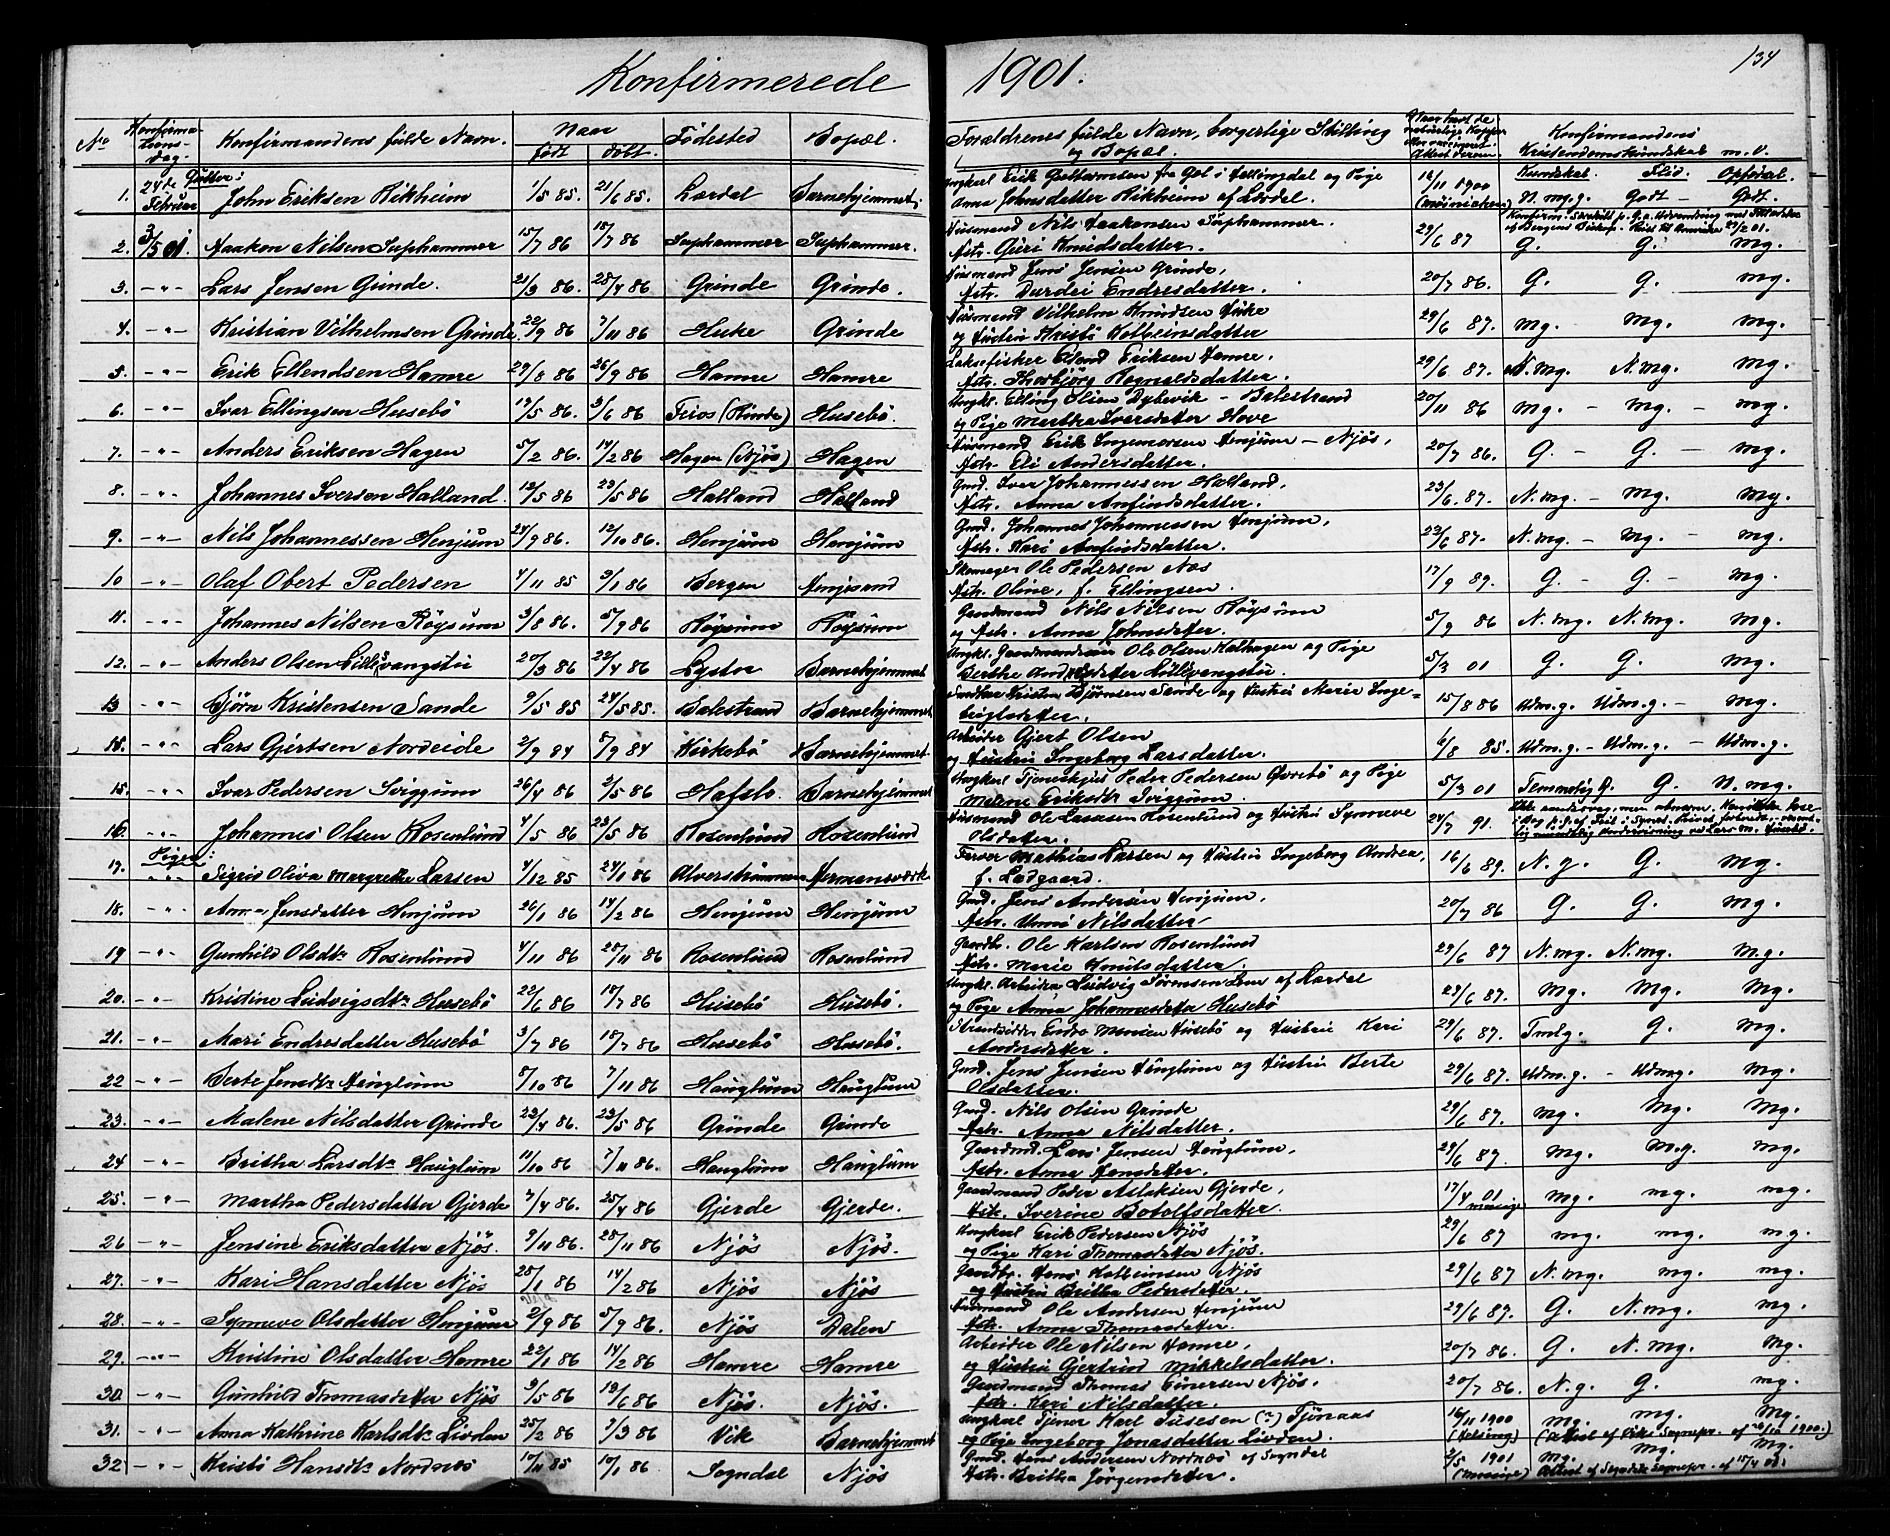 Konfirmerede 1901.
134
No Konfirma-tions-dag. Konfirmandens fulde Navn. Naar født døbt. Fødested Bopæl. Forældrenes fulde Navn, borgerlige Stilling og Bopæl. Konfirmandens Kristendomskundskab m.V.
Kundskab. Flid. Opførsel.
Gutter:
1. 24de Februar John Eriksen Rikheim 1/5 85. 21/6 85. Lærdal Barnehjemmet. Ungkarl Erik Guttormsen fra Gol i Hallingdal og Pige Anna Johnsdatter Rikheim af Lærdal. 14/11 1900 N.m.g. Godt - Godt.
2. 3/5 01. Haakon Nilsen Suphammer 15/7 86 18/7 86 Suphammer Suphammer. Husmand Nils Haakonsen Suphammer. Hstr. Guri Knudsdatter. 29/6 87 G. G. mg.
3. -"- Lars Jensen Grinde. 21/3 86. 28/4 86 Grinde Grinde. Husmand Jens Jensen Grinde, Hstr. Durdei Endresdatter. 20/7 86. G. G. mg.
4. -"- Kristian Vilhelmsen Grinde 22/9 86 7/11 86 Huke Grinde Husmand Vilhelm Knudsen Huke og Hustru Kristi Kolbeinsdatter 29/6 87. mg. - mg. - mg.
5. -"- Erik Ellendsen Hamre 29/8 86 26/9 86 Hamre Hamre Laksefisker Ellend Eriksen Hamre. Hstr. Thorbjörg Rognaldsdatter. 29/6 87. N.mg. N.mg. mg.
6. -"- Ivar Ellingsen Husebö 19/5 86. 3/6 86 Feios (Rinde) Husebö. Ungk. Elling Olsen Dybevik - Balestrand og Pige Martha Iversdatter Hove 20/11 86 mg. - mg. - mg.
7. -"- Anders Eriksen Hagen 5/2 86. 14/2 86 Hagen (Njös) Hagen Husmand Erik Ingemorsen Henjum - Njös, Hstr. Eli Andersdatter. 20/7 86. G - G. - mg.
8. -"- Johannes Iversen Halland. 12/5 86 23/5 86 Halland Halland Gmd. Ivar Johannessen Halland. Hstr. Anna Anfindsdatter. 23/6 87. N.mg. - mg. mg.
9. -"- Nils Johannessen Henjum 24/9 86. 12/10 86. Henjum Henjum Gmd. Johannes Johannessen Henjum, Hstr. Kari Anfindsdatter. 23/6 87. N.mg. - mg. - mg.
10 -"- Olaf Obert Pedersen 4/11 85 3/1 86 Bergen Henjesand Skomager Ole Pedersen Næs Hstr. Oline, f. Ellingsen. 17/9 89. G. - G. - mg.
11. -"- Johannes Nilsen Röysum 3/8 86. 5/9 86 Röysum Röysum Gaardmand Nils Nilsen Röysum og Hstr. Anna Johnsdatter. 5/9 86 N.mg. N.mg. mg.
12. -"- Anders Olsen Lillevangstu 20/3 86 22/4 86 Lyster Barnehjemmet Ole Olsen Kalhagen og Pige Berthe Lillevangstu. 5/3 01 G. G. mg.
13 -"- Björn Kristensen Sande 9/5 85 24/5 85. Balestrand Barnehjemmet. Kristen Björnsen Sande og Hustru Marie Ingebrigtsdatter. 15/8 86 Udm.g. Udm.g. - mg.
14. -"- Lars Gjertsen Nordeide 2/9 84 5/9 84 Kirkebö Barnehjemmet. Arbeider Gjert Olsen og Hustru Ingeborg Larsdatter. 4/8 85. Udm.g. - Udm.g. - Udm.g.
15. -"- Ivar Pedersen Soggum 26/4 86 2/5 86 Hafslo. Barnehjemmet Ungkarl Peder Pedersen Övrebö og Pige Malene Eriksdtr. 5/3 01 Temmelig G. G. N.mg.
16. -"- Johannes Olsen Rosenlund 4/5 86 23/5 86 Rosenlund Rosenlund Husmand Ole Larssen Rosenlund og Hustru Synneve Olsdatter. 24/7 91.
Piger:
17. -"- Sigrid Oliva Margrethe Larsen 4/12 85 24/1 86 Alverströmmen Hermansværk Farver Mathias Larsen og Hustru Ingeborg Andrea, f. Ladgaard. 16/6 89. N.g. G. mg.
18. -"- Anna Jensdatter Henjum 26/1 86 14/2 86 Henjum Henjum Gmd. Jens Andersen Henjum, Hstr. Unni Nilsdatter 20/7 86 G. G. mg.
19 -"- Gunhild Olsdtr. Rosenlund 4/11 86 28/11 86 Rosenlund Rosenlund Gaardbr. Ole Karlsen Rosenlund Hstr. Marie Knutsdatter. 29/6 87 N.mg. N.mg. m.g.
20. -"- Kristine Ludvigsdtr. Husebö 22/6 86 18/7 86 Husebö Husebö. Ungk. Arbeider Ludvig Sörensen Lem af Lærdal og Pige Anna Johannesdatter Husebö 23/6 87. mg. mg. mg.
21. -"- Mari Endresdatter Husebö 3/7 86 18/7 86 Husebö Husebö. Strandsidder Endre Monsen Husebö og Hustru Kari Andersdatter. 29/6 87. Tmlg. G. mg.
22 -"- Berte Jensdtr. Hauglum 8/10 86 7/11 86 Hauglum Hauglum Gmd. Jens Jensen Hauglum og Hustru Berte Olsdatter. 29/6 87. Udm.g. - Udmg. mg.
23. -"- Malene Nilsdatter Grinde 22/4 86. 23/5 86 Grinde Grinde Gmd. Nils Olsen Grinde Hstr. Anna Nilsdatter. 29/6 87. mg. mg. mg.
24 -"- Britha Larsdtr. Hauglum 11/10 86 7/11 86. Hauglum Hauglum Gaardmd. Lars Jensen Hauglum, Hstr. Anna Hansdatter. 29/6 87. mg. m.g. mg.
25. -"- Martha Pedersdatter Gjerde 7/4 86. 25/4 86 Gjerde Gjerde. Gaardmand Peder Aslaksen Gjerde, Hstr. Iverine Botolfsdatter. 17/4 01 mg. mg. mg.
26 -"- Jensine Eriksdatter Njös. 9/11 86. 28/11 86 Njös Njös. Ungkarl Erik Pedersen Njös og Pige Kari Thomasdatter Njös. 29/6 87 mg. mg. mg.
27. -"- Kari Hansdatter Njös 25/1 86 14/2 86 Njös Njös Gaardbr. Hans Kolbeinsen Njös og Hustru Britha Pedersdatter. 29/6 87 N.mg. mg. mg.
28. -"- Synneve Olsdatter Henjum 2/9 86 5/9 86. Njös Dalen Husmand Ole Andersen Henjum Hstr. Anna Thomasdatter. 29/6 87. G. N.mg. mg.
29. -"- Kristine Olsdatter Hamre 22/1 86 14/2 86 Hamre Hamre Arbeider Ole Nilsen Hamre, og Hustru Gjertrud Mikkelsdatter. 20/7 86. G. N.mg. mg.
30. -"- Gunhild Thomasdatter Njös 9/5 86 13/6 86 Njös. Njös. Gaardmand Thomas Einersen Njös. Hstr. Kari Nilsdatter. 20/7 86. N.g. G. mg.
31. -"- Anna Kathrine Karlsdtr. Livden 25/2 86 7/3 86 Vik Barnehjemmet Ungkarl Tjener Karl Tufesen (?) Tjönaas og Pige Ingeborg Jonasdatter Livden. 16/11 1900 mg. mg. mg. (Attest af Viks Sognepr. af 20/10 1900.)
32 -"- Kristi Hansdtr. Nordnæs 10/11 85 10/1 86 Sogndal Njös Gmd. Hans Andersen Nordnæs af Sogndal Hstr. Britha Jörgensdatter. 2/5 1901 mg. mg. mg. Attest af Sogndals Sognepr. af 15/4 01.